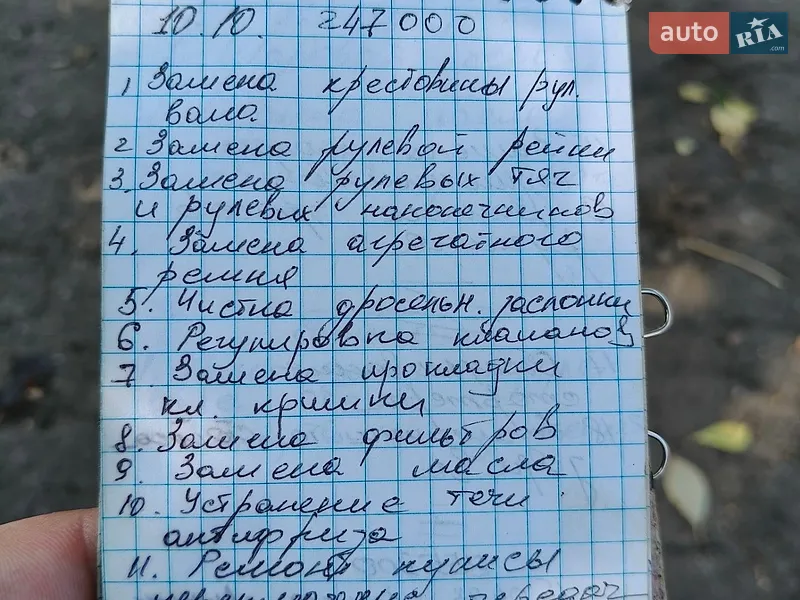 10.10. 247000
auto RIA .com
1 Замена крестовины рул.
вала.
2 Замена рулевой рейки
3. Замена рулевых тяг
и рулевых наконечников
4. Замена агрегатного
ремня
5. Чистка дросельн. заслонки
6. Регулировка клапанов
7. Замена прокладки
кл. крышки
8. Замена фильтров
9. Замена масла
10. Устранение течи
антифриза
11. Ремонт кулисы
передач